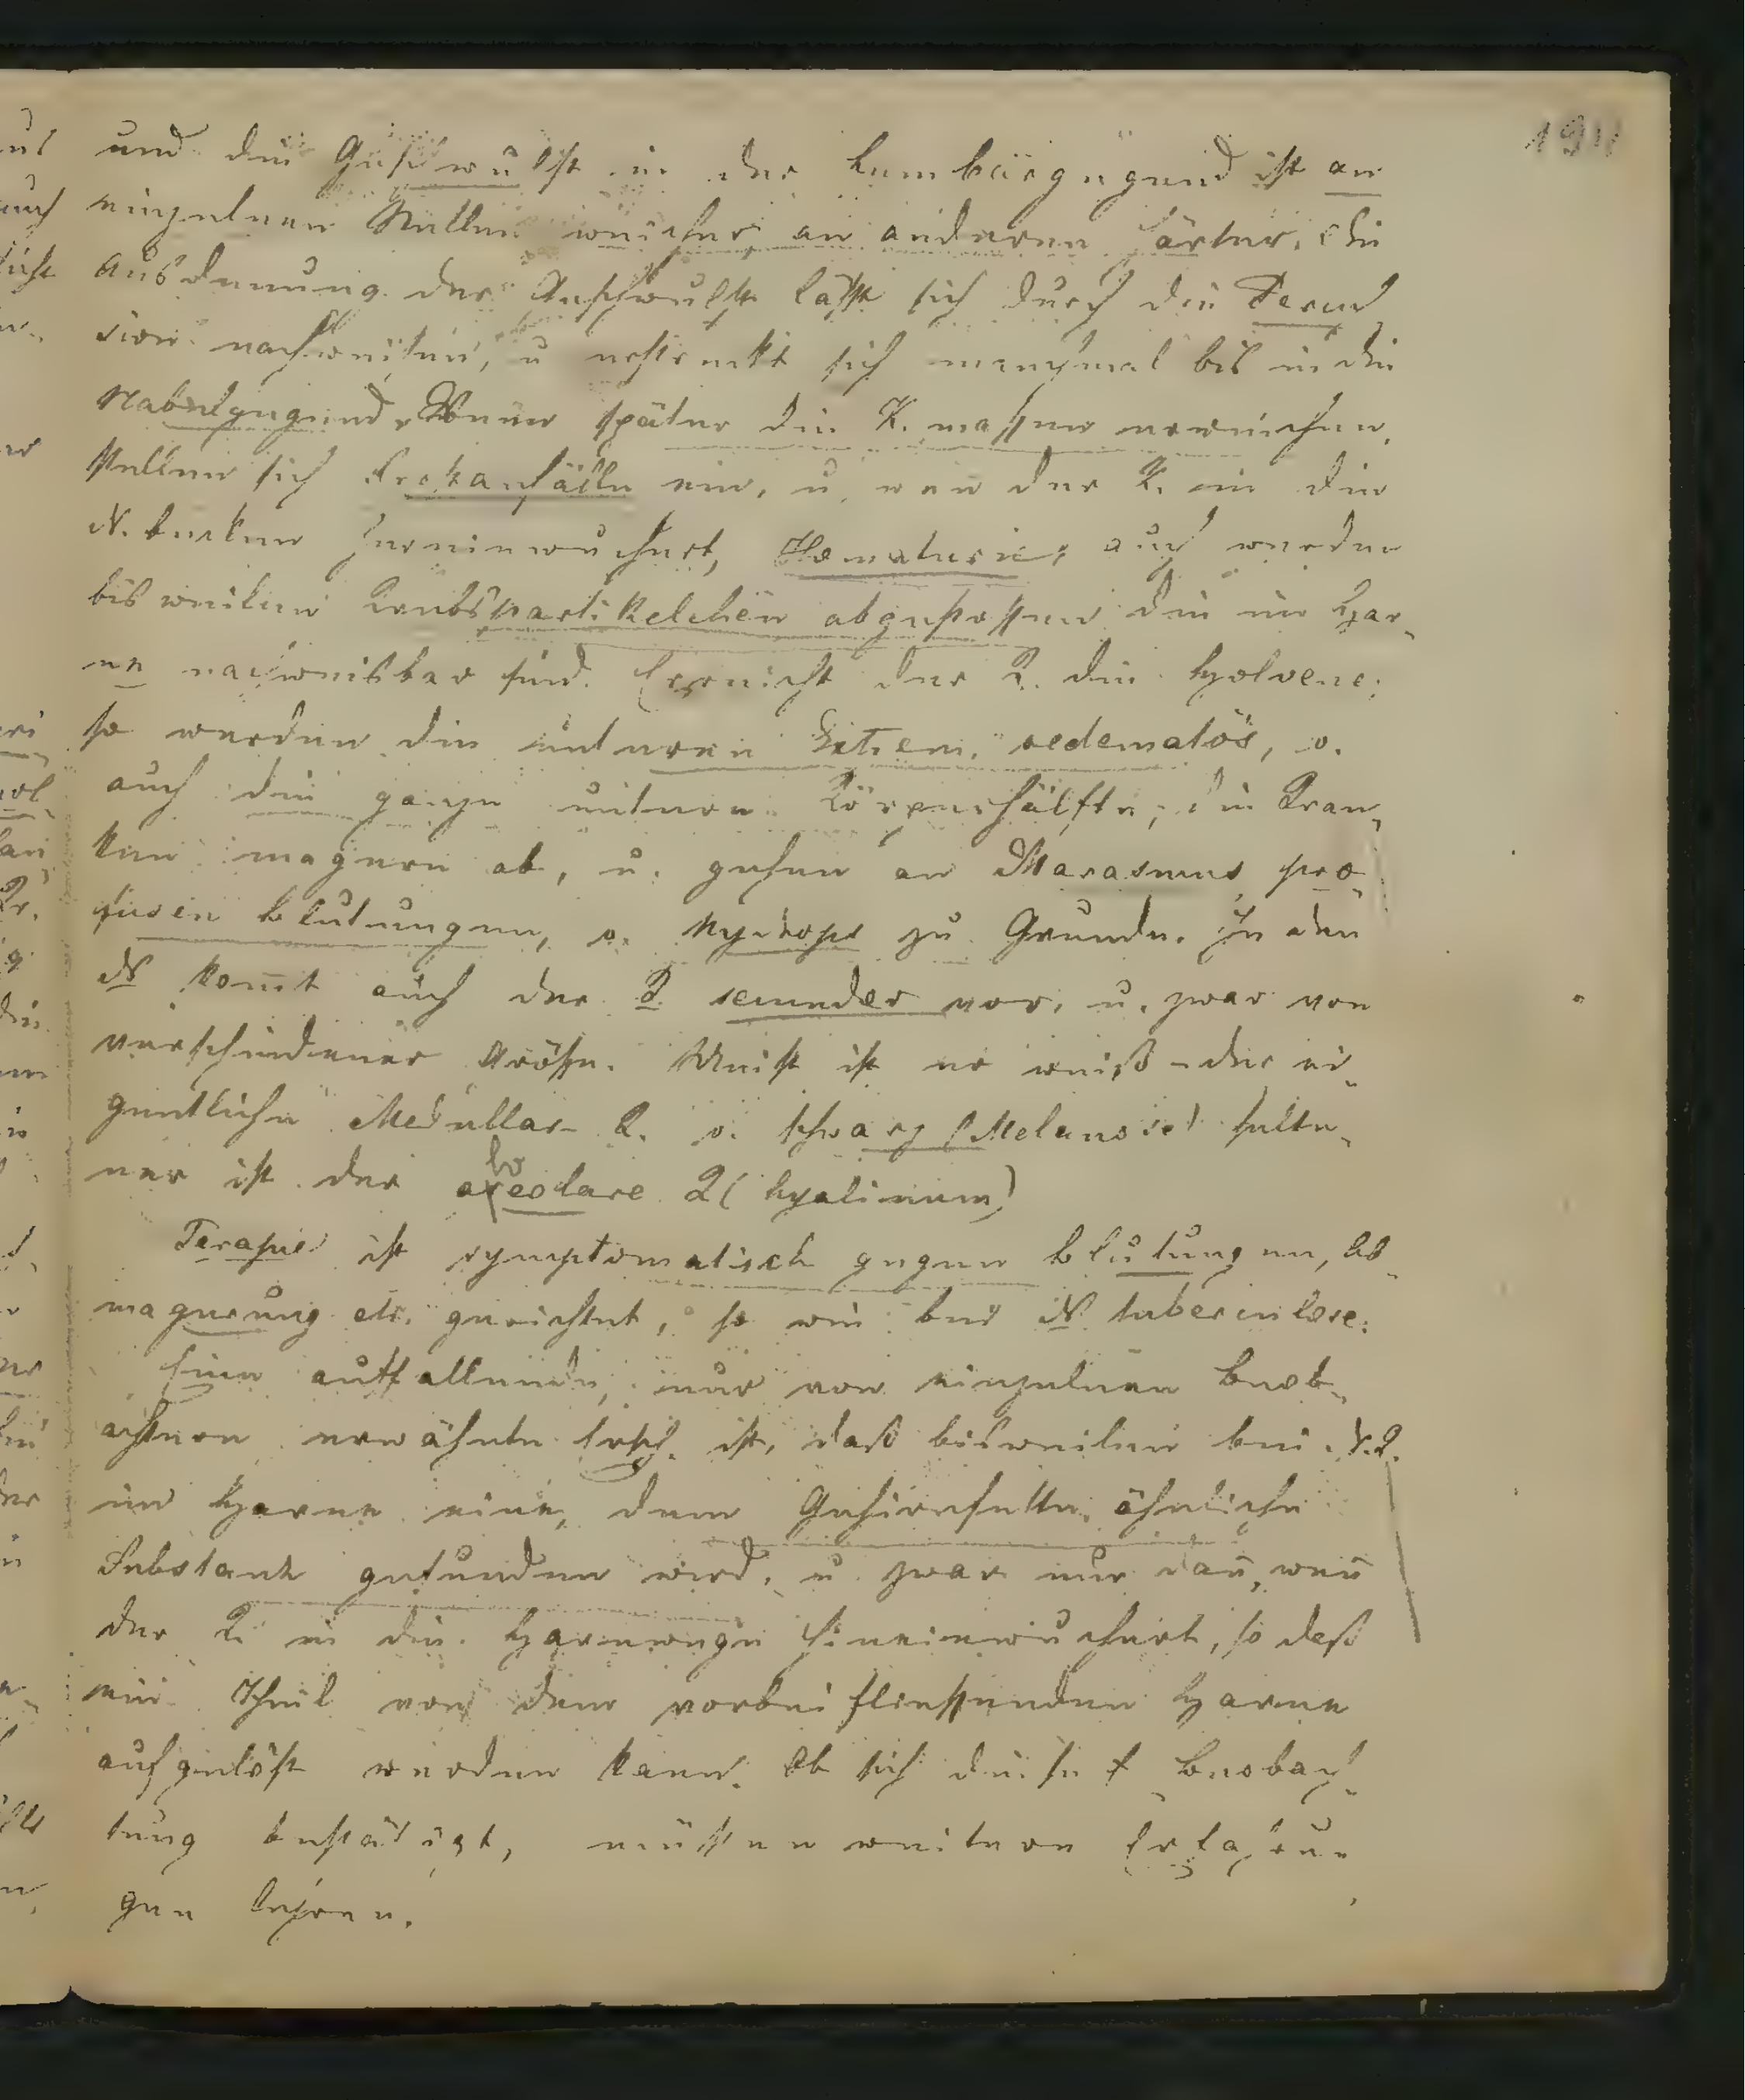 194
und die Geschwulst in der Lumbargegend ist an
einzelnen Stellen weicher an anderen härter, die
Ausdenung der Anschwulst läßt sich durch die Percus
sion nachweisen, u erstreckt sich manchmal bis in die
Nabelgegend. Wenn später die K. massen erweichen,
stellen sich Frostanfälle ein, u. wen der K. in die
N. becken hereinwuchert, Hæmaturie; auch werden
bisweilen Krebspartikelchen abgestossen die im Har,
ne nachweisbar sind. Erreicht der K. die
so werden die unteren Extrem. oedematös, o.
auch die ganze untere Körperhälfte; die Kran,
ken magern ab, u. gehen an Marasmus, pro
fusen Blutungen, o. Hydrops zu Grunde. In den
N kom̄t auch der K secundær vor, u. zwar von
verschiedener Größe. Meist ist er weiß – der ei,
gentliche Medullar- K. o. schwarz (Melanose) selte,
ner ist der alveolare K (hyalinum)
Terapie ist symptomatisch gegen Blutungen, Ab
magerung etc. gerichtet, so wie bei N. tuberculose.
Eine auffallende, nur von einzelnen Beob,
achtern erwähnte Ersch. ist, daß bisweilen bei N.K.
im Harne eine, dem Gehirnfette ähnliche
Substanz gefunden wird, u zwar nur dan̄, wen̄
der K. in die Harnwege hineinwuchert, so daß
ein Theil von dem vorbeifliessenden Harne
aufgelöst werden kann. Ob sich diese Beobach,
tung bestätigt, müssen weitere Erfahrun
gen lehren.